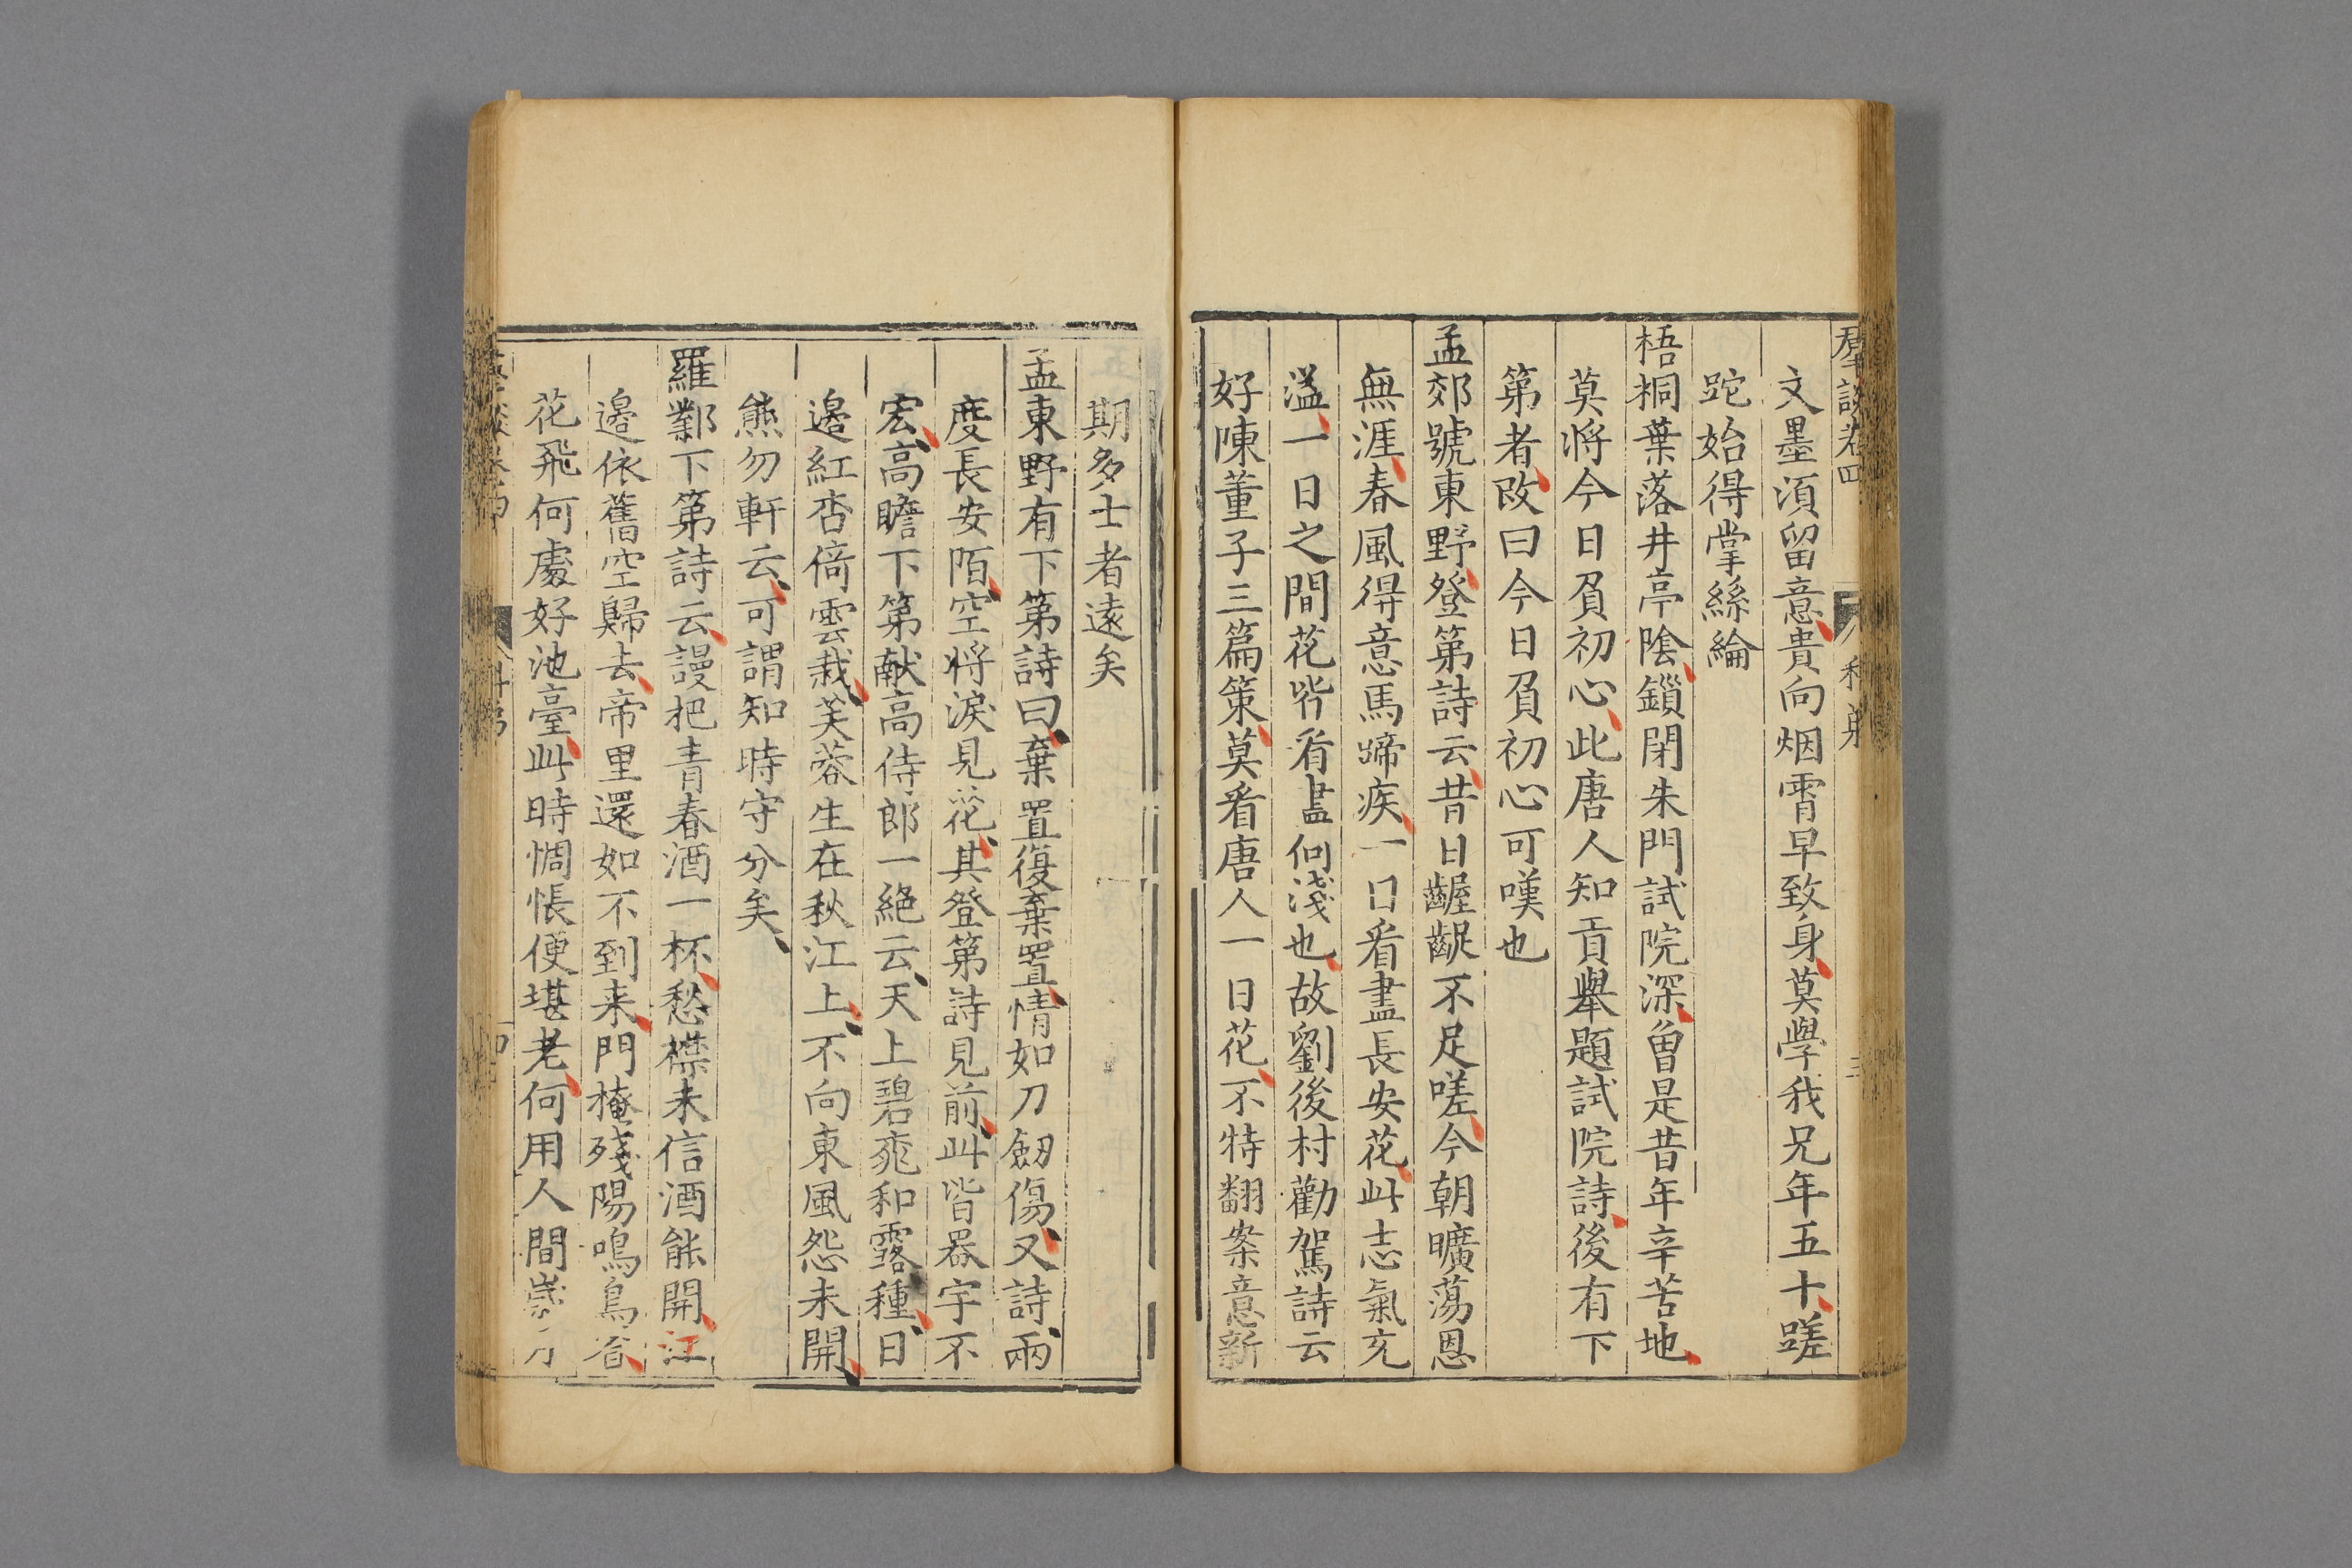 羣談卷四 科第 三
文墨湏留意貴向烟霄早致身莫學我兄年五十蹉
跎始得掌絲綸
梧桐葉落井亭隂鎻閉朱門試院深曽是昔年辛苦地
莫將今日負初心此唐人知貢舉題試院詩後有下
第者改曰今日負初心可嘆也
孟郊號東野登第詩云昔日齷齪不足嗟今朝曠蕩恩
無涯春風得意馬蹄疾一日看盡長安花此志氣充
溢一日之間花皆看盡何淺也故劉後村勸駕詩云
好陳董子三篇策莫看唐人一日花不特翻案意新
期多士者遠矣
孟東野有下第詩曰棄置復棄置情如刀劒傷又詩兩
度長安陌空将淚見花其登第詩見前此皆器宇不
宏高瞻下第献高侍郎一絶云天上碧桃和露種日
邉紅杏倚雲栽芙蓉生在秋江上不向東風怨未開
熊勿軒云可謂知時守分矣
羅鄴下第詩云謾把青春酒一杯愁襟未信酒能開江
邉依舊空歸去帝里還如不到来門掩殘陽鳴鳥
花飛何處好池臺此時惆悵便堪老何用人間